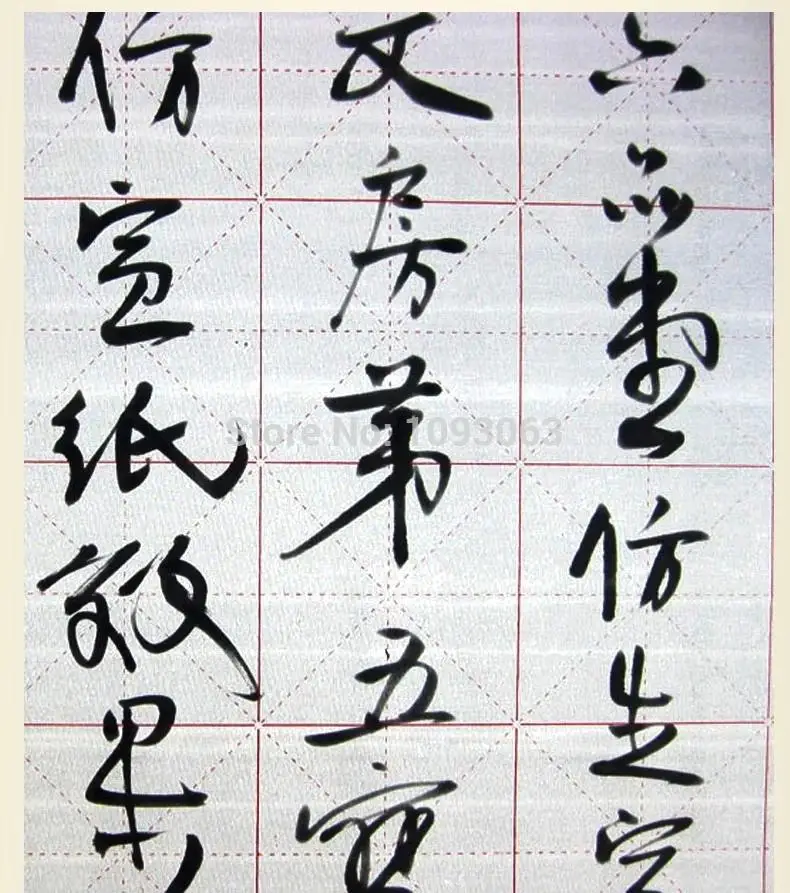 六品堂仿生宣
文房第五寶
仿宣纸效果
Store No: 1093063